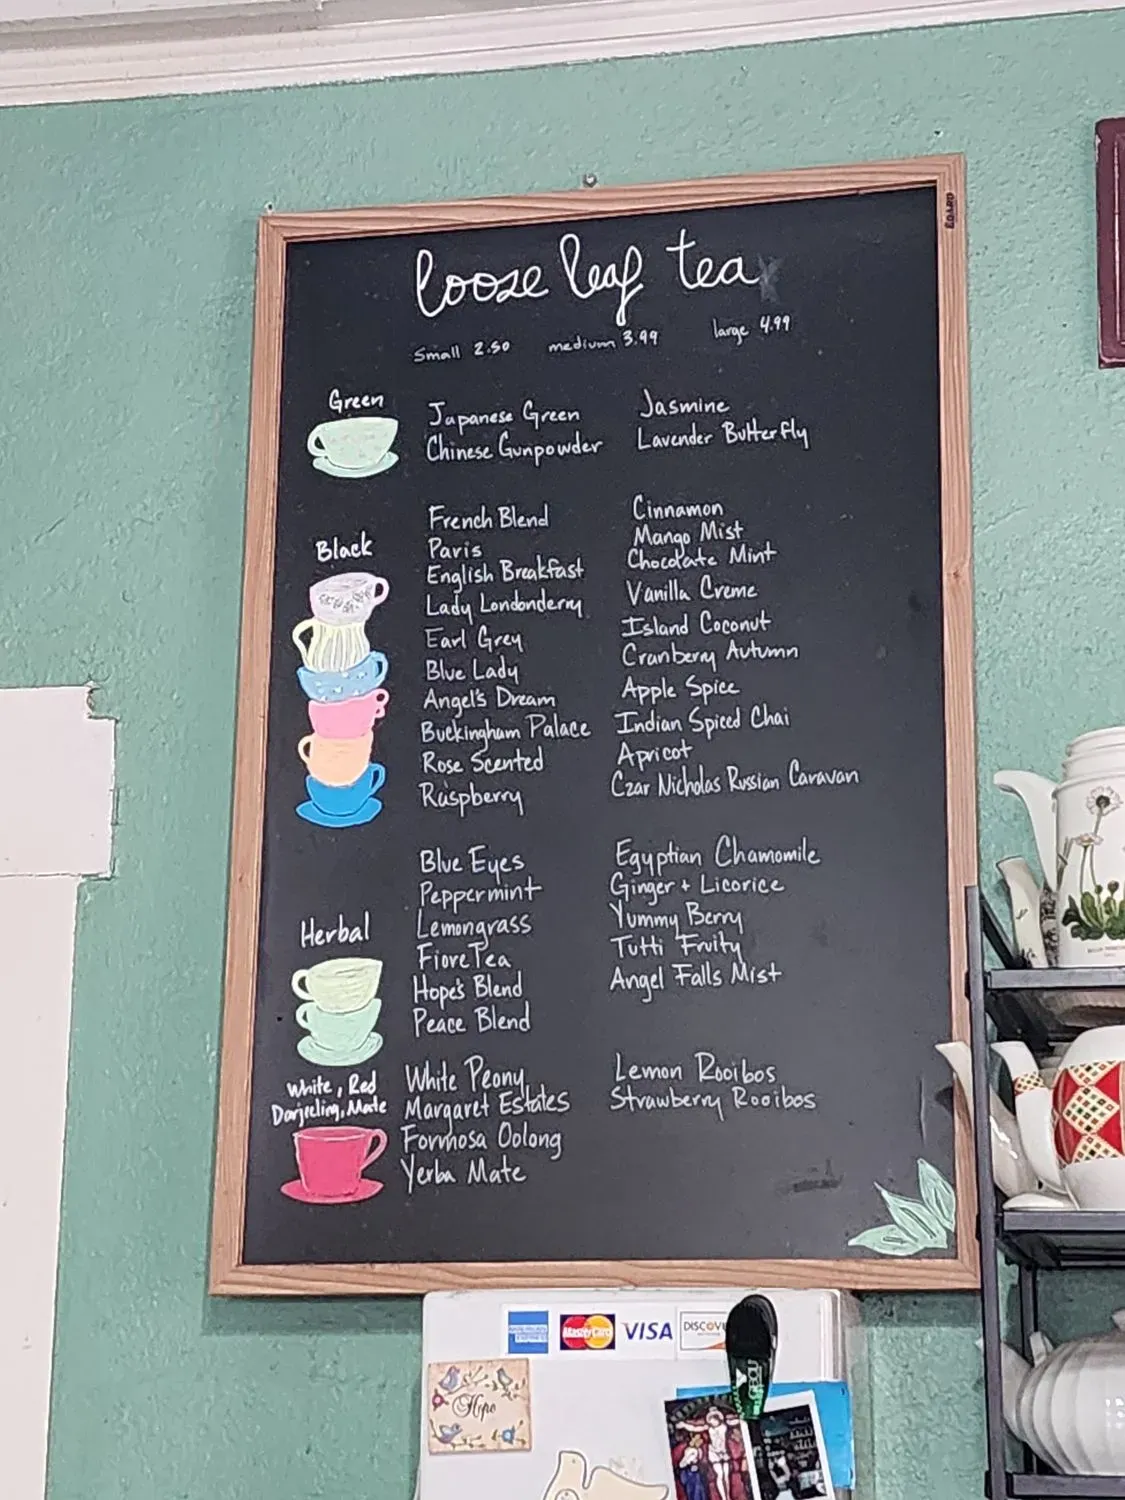 loose leaf tea
small 2.50 medium 3.99 large 4.99
Green
Japanese Green
Chinese Gunpowder
Jasmine
Lavender Butterfly
Black
French Blend
Paris
English Breakfast
Lady Londonderry
Earl Grey
Blue Lady
Angel's Dream
Buckingham Palace
Rose Scented
Raspberry
Cinnamon
Mango Mist
Chocolate Mint
Vanilla Creme
Island Coconut
Cranberry Autumn
Apple Spice
Indian Spiced Chai
Apricot
Czar Nicholas Russian Caravan
Herbal
Blue Eyes
Peppermint
Lemongrass
Fiore Tea
Hope's Blend
Peace Blend
Egyptian Chamomile
Ginger + Licorice
Yummy Berry
Tutti Fruity
Angel Falls Mist
White, Red
Darjeeling, Mate
White Peony
Margaret Estates
Formosa Oolong
Yerba Mate
Lemon Rooibos
Strawberry Rooibos
AMERICAN EXPRESS
MasterCard
VISA
Hope